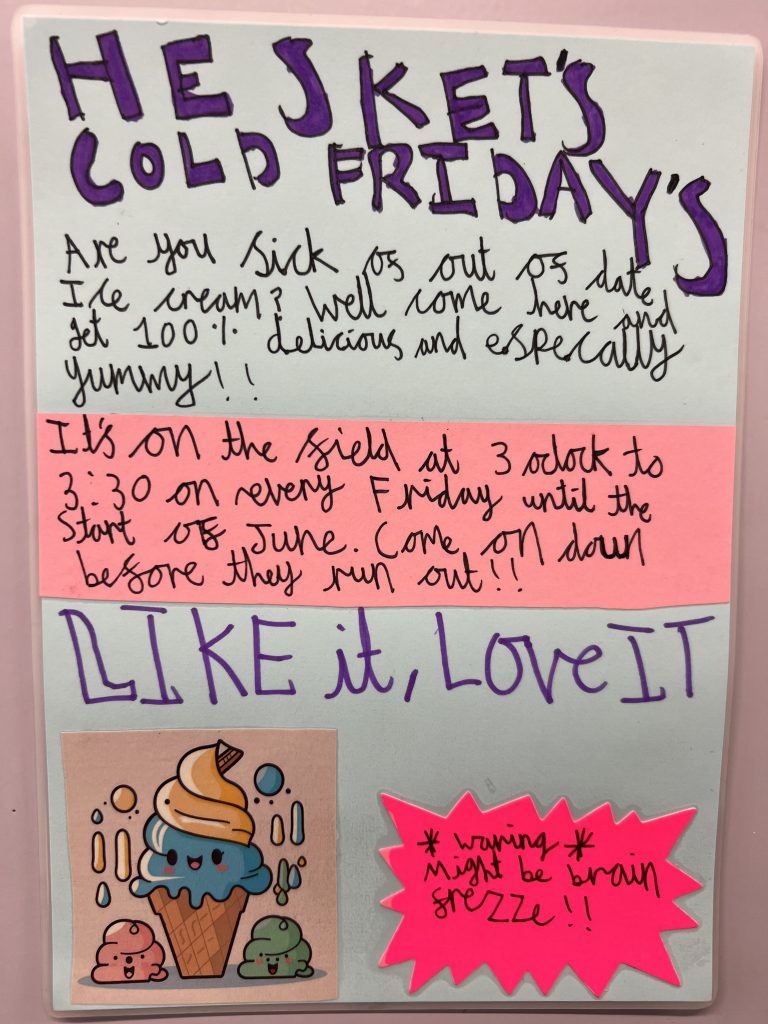 HESKET'S
COLD FRIDAY'S
Are you sick of out of date
Ice cream? Well come here and
get 100% delicious and especally
yummy!!
It's on the field at 3 oclock to
3:30 on every Friday until the
Start of June. Come on down
before they run out!!
LIKE it, LOVE IT
* warining *
Might be brain
frezze!!